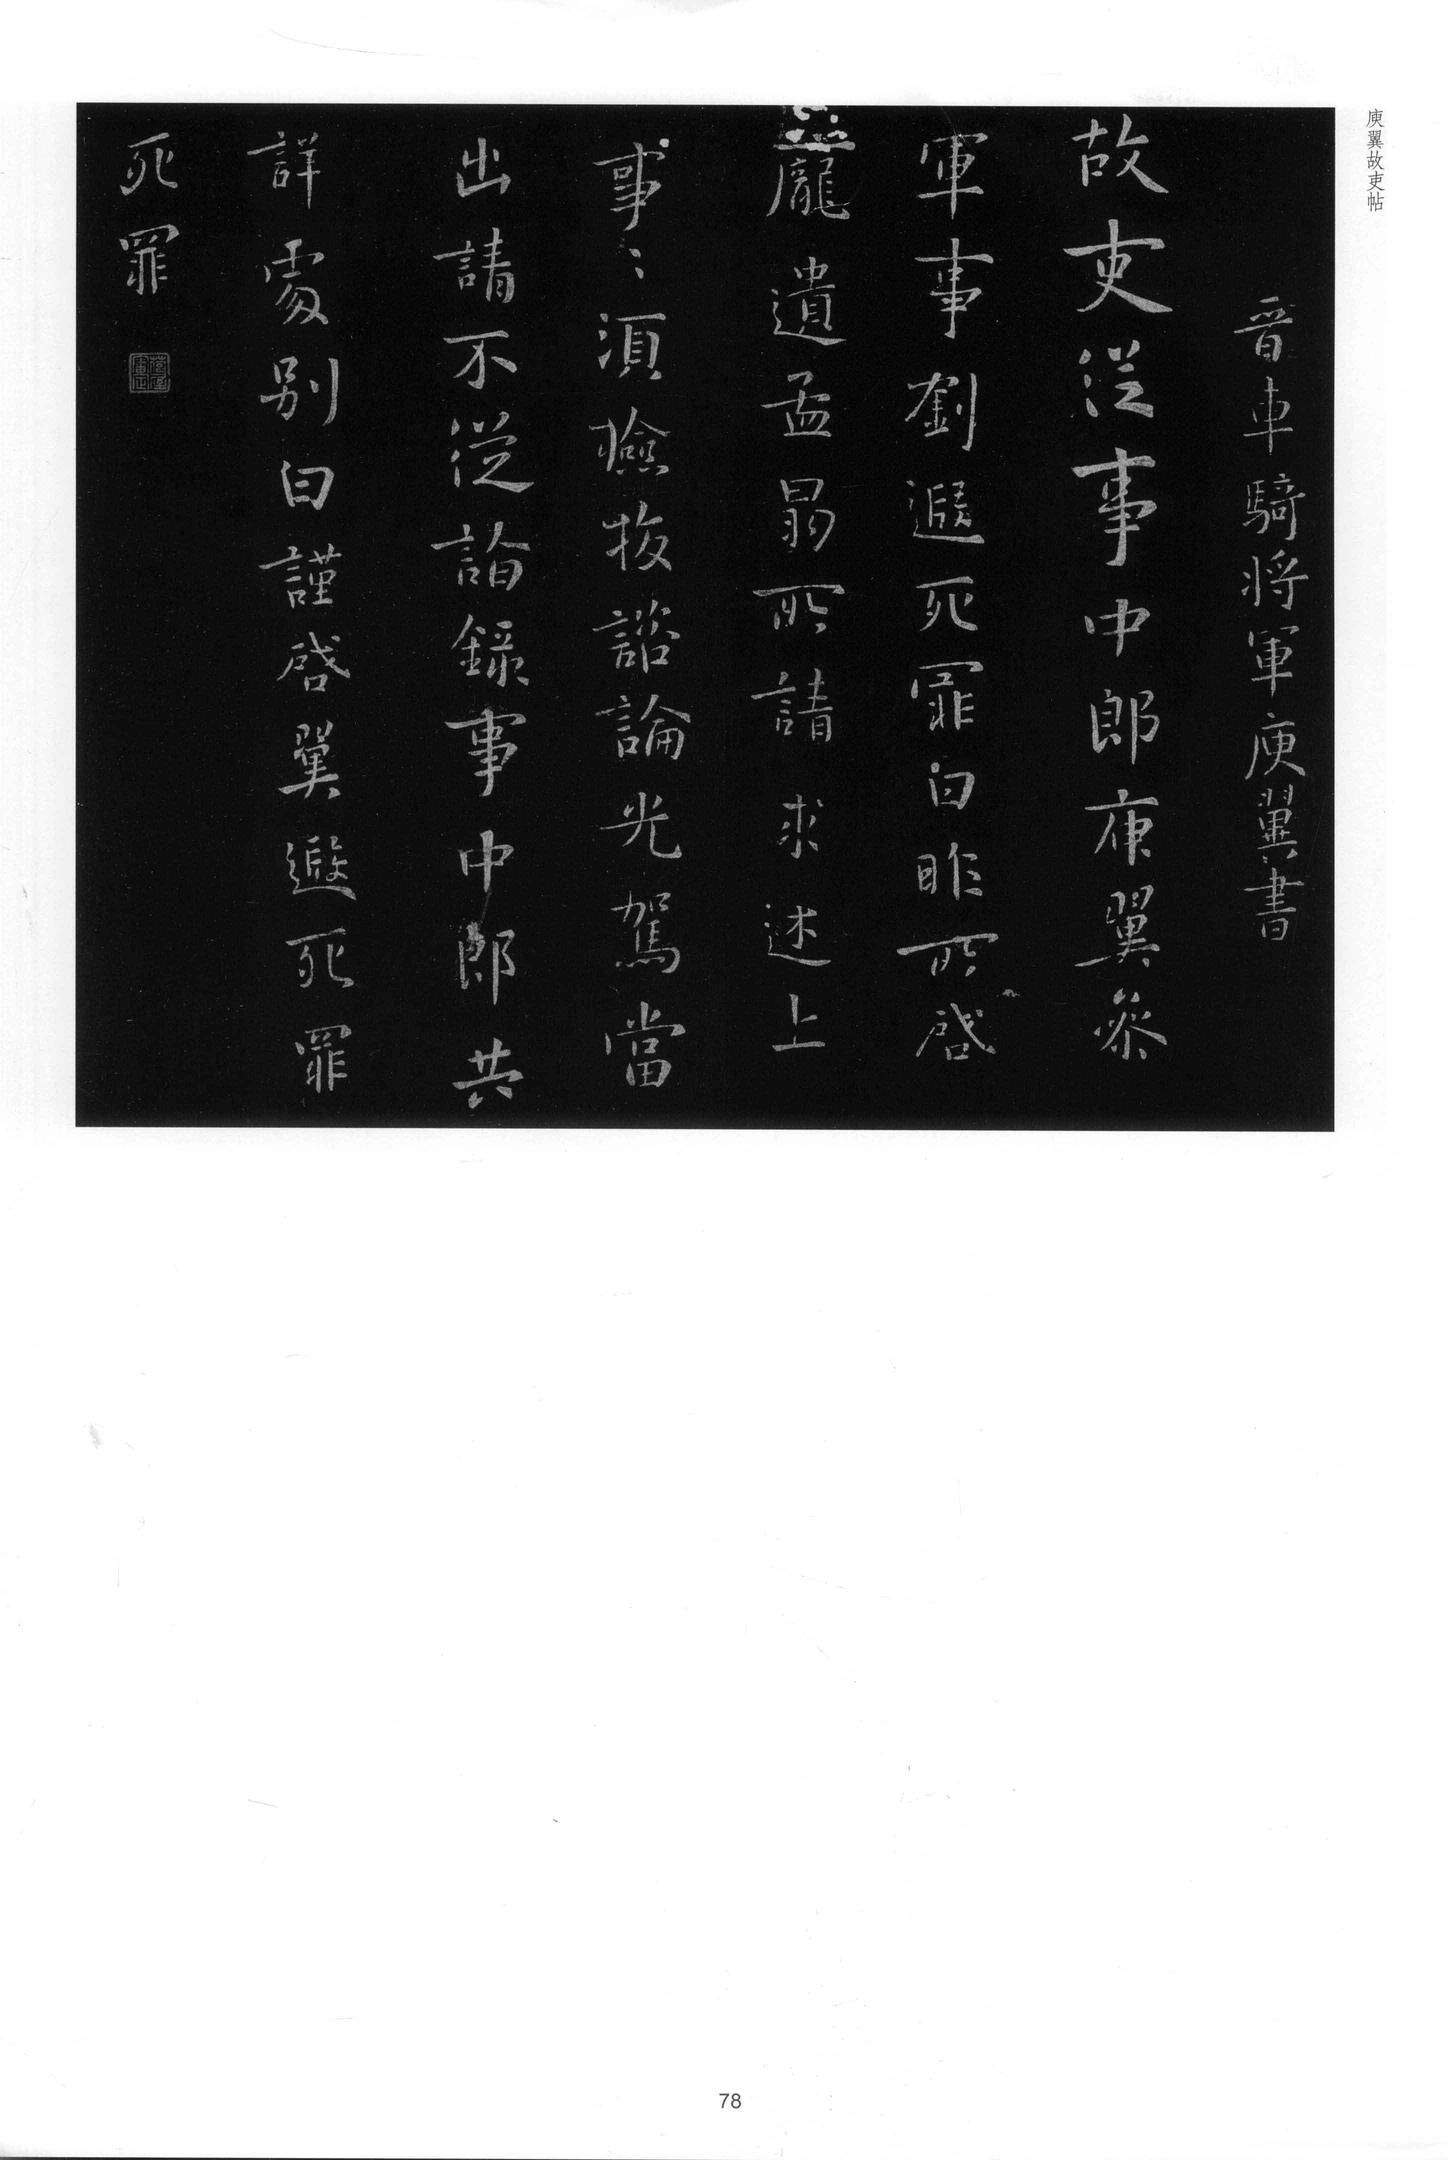 庾翼故吏帖
晉車騎将軍庾翼書
故吏從事中郎庾翼參
軍事劉遐死罪白昨所啓
龐遺孟昺所請求述上
事〻湏撿挍諮論光駕當
出請不從詣錄事中郎共
詳處別白謹啓翼遐死罪
死罪
78